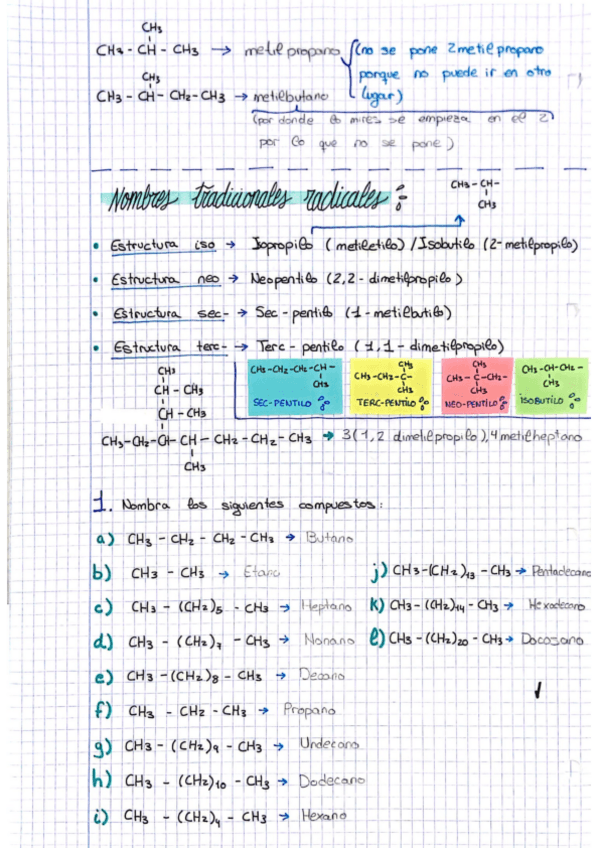 CH3
CH3 - CH - CH3 → metilpropano (no se pone 2metilpropano
porque no puede ir en otro
lugar)
CH3
CH3 - CH - CH2 - CH3 → metilbutano
(por donde lo mires se empieza en el 2
por lo que no se pone)
Nombres tradicionales radicales:
CH3 - CH -
CH3
• Estructura iso → Isopropilo (metiletilo) / Isobutilo (2-metilpropilo)
• Estructura neo → Neopentilo (2,2-dimetilpropilo)
• Estructura sec- → Sec-pentilo (1-metilbutilo)
• Estructura terc- → Terc-pentilo (1,1-dimetilpropilo)
CH3-CH2-CH2-CH-
CH3
SEC-PENTILO
CH3
CH3-CH2-C-
CH3
TERC-PENTILO
CH3
CH3-C-CH2-
CH3
NEO-PENTILO
CH3-CH-CH2-
CH3
ISOBUTILO
CH3
CH - CH3
CH - CH3
CH3-CH2-CH-CH-CH2-CH2-CH3 → 3(1,2 dimetilpropilo),4metilheptano
CH3
1. Nombra los siguientes compuestos:
a) CH3 - CH2 - CH2 - CH3 → Butano
b) CH3 - CH3 → Etano
c) CH3 - (CH2)5 - CH3 → Heptano
d) CH3 - (CH2)7 - CH3 → Nonano
e) CH3 - (CH2)8 - CH3 → Decano
f) CH3 - CH2 - CH3 → Propano
g) CH3 - (CH2)9 - CH3 → Undecano
h) CH3 - (CH2)10 - CH3 → Dodecano
i) CH3 - (CH2)4 - CH3 → Hexano
j) CH3-(CH2)13 - CH3 → Pentadecano
k) CH3-(CH2)14 - CH3 → Hexadecano
l) CH3-(CH2)20 - CH3 → Docosano